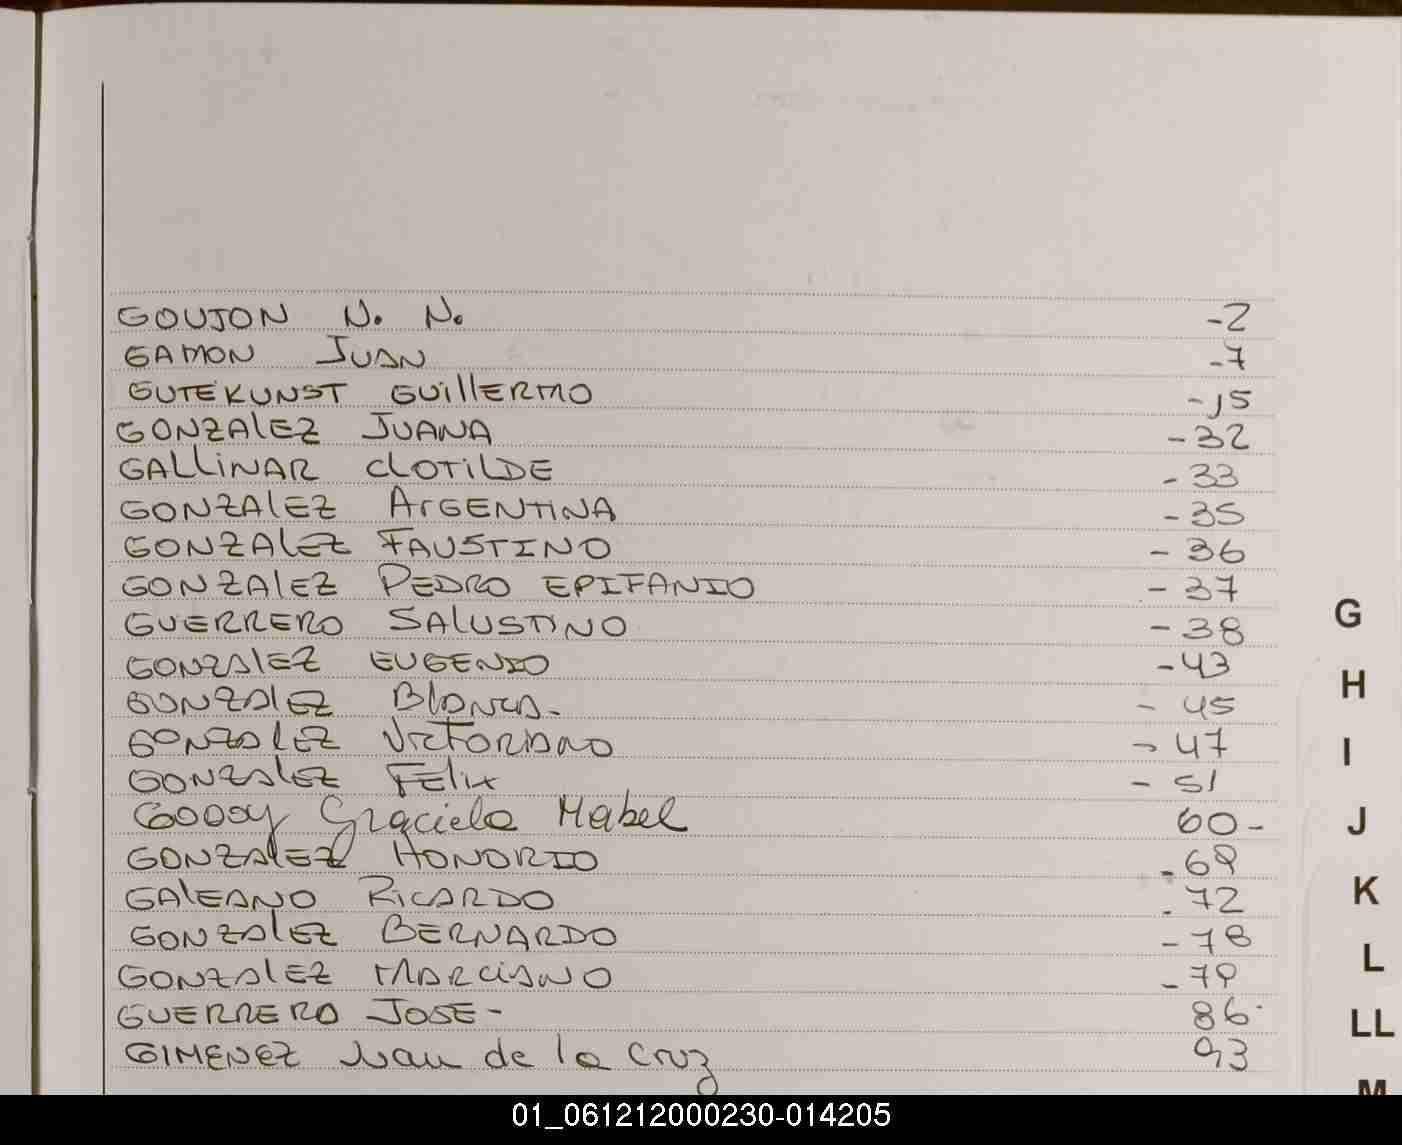 GOUJON N. N. -2
GAMON JUAN -7
GUTEKUNST GUILLERMO -15
GONZALEZ JUANA -32
GALLINAR CLOTILDE -33
GONZALEZ ARGENTINA -35
GONZALEZ FAUSTINO -36
GONZALEZ PEDRO EPIFANIO -37
GUERRERO SALUSTINO -38
GONZALEZ EUGENIO -43
GONZALEZ BLANCA- -45
GONZALEZ VICTORIANO -47
GONZALEZ FELIX -51
GODOY Graciela Mabel 60-
GONZALEZ HONORIO -69
GALEANO RICARDO -72
GONZALEZ BERNARDO -78
GONZALEZ MARCIANO -79
GUERRERO JOSE- 86-
GIMENEZ Juan de la Cruz 93
G
H
I
J
K
L
LL
M
01_061212000230-014205